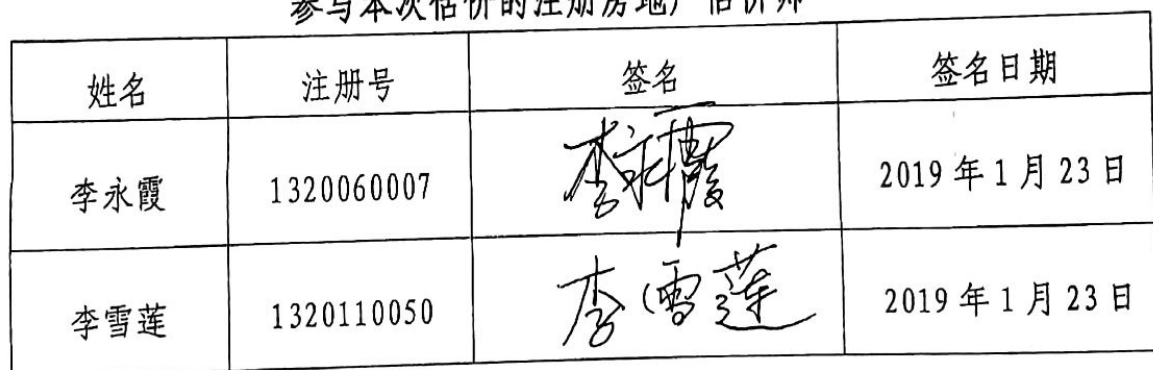 参与本次估价的注册房地产估价师
姓名 注册号 签名 签名日期
李永霞 1320060007 李永霞 2019年1月23日
李雪莲 1320110050 李雪莲 2019年1月23日